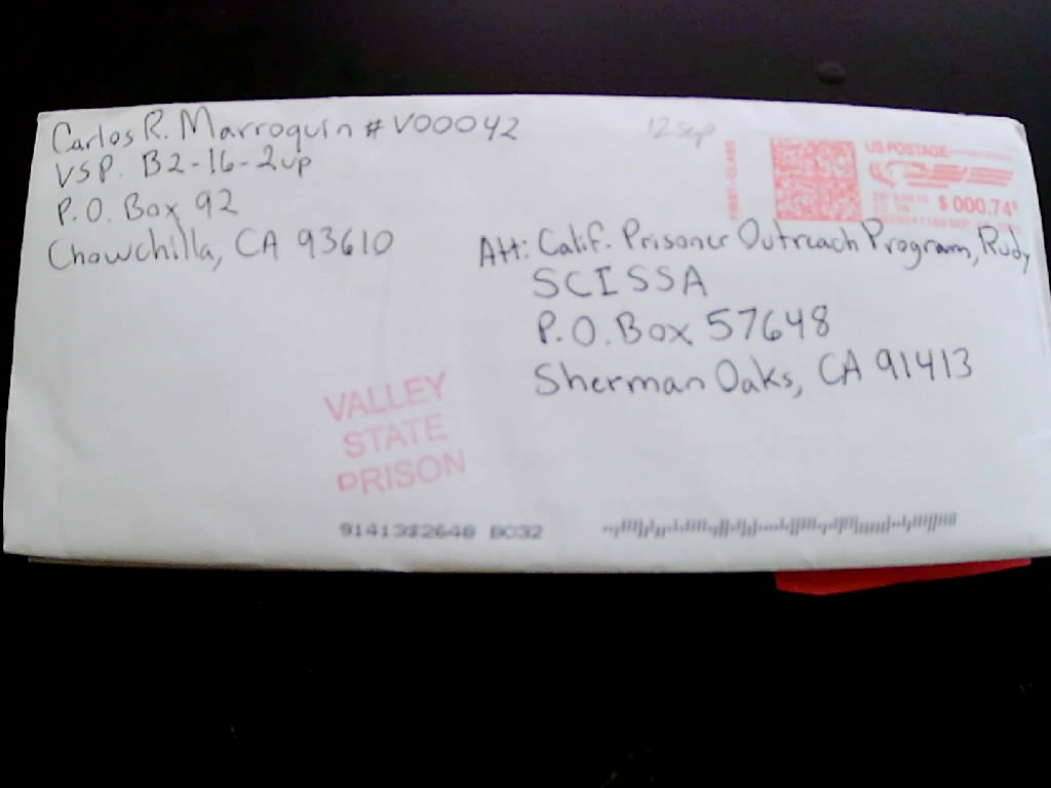 Carlos R. Marroquin # V00042
VSP. B2-16-2up
P.O. Box 92
Chowchilla, CA 93610
12 Sep
FIRST-CLASS
US POSTAGE
$ 000.74
Att: Calif. Prisoner Outreach Program, Rudy
SCISSA
P.O. Box 57648
Sherman Oaks, CA 91413
VALLEY
STATE
PRISON
B032